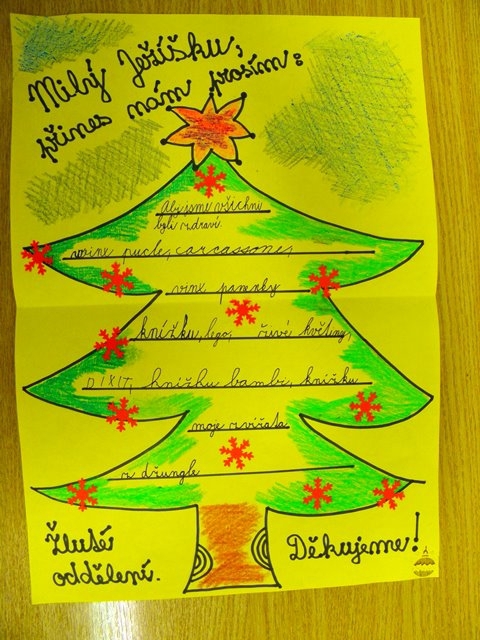 Milý Ježíšku,
přines nám prosím:
Aby jsme všichni
byli zdraví.
winx pucle, carcassone,
winx panenky
knížku, lego, živé květiny,
DIXIT, knížku bambi, knížku
moje zvířata
z džungle
Žluté
oddělení.
Děkujeme!